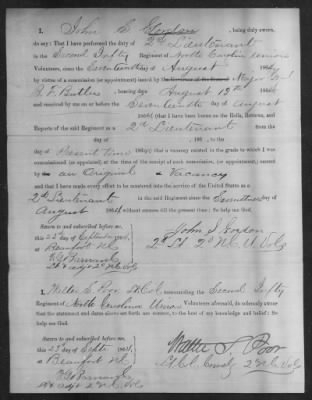 I, John S Gordon, being duly sworn,
do say: That I have performed the duty of 2d Lieutenant
in the Second Infty Regiment of North Carolina Union
Volunteers, since the Seventeenth day of August 1864
by virtue of a commission (or appointment) issued by Major Genl
B F Butler, bearing date August 13th 1864
and received by me on or before the Seventeenth day of August
1864; that I have been borne on the Rolls, Returns, and
Reports of the said Regiment as a 2d Lieutenant from the
day of , 186 , to the
day of Present time 186 ; that a vacancy existed in the grade to which I was
commissioned (or appointed) at the time of the receipt of such commission, (or appointment,) caused
by an Original Vacancy
and that I have made every effort to be mustered into the service of the United States as a
2d Lieutenant in the said Regiment since the Seventeenth day of
August 1864 without success till the present time: So help me God.
Sworn to and subscribed before me,
this 23d day of September 1864,
at Beaufort N.C.
John S Gordon
2d Lt 2d N.C. U. Vols
I, Walter S. Poor, Lt Col. commanding the Second Infty
Regiment of North Carolina Union Volunteers aforesaid, do solemnly swear
that the statement and dates above set forth are correct, to the best of my knowledge and belief: So
help me God.
Sworn to and subscribed before me,
this 23d day of Sept 1864,
at Beaufort N.C.
Walter S. Poor
Lt Col. Comdg 2d N.C. Vols